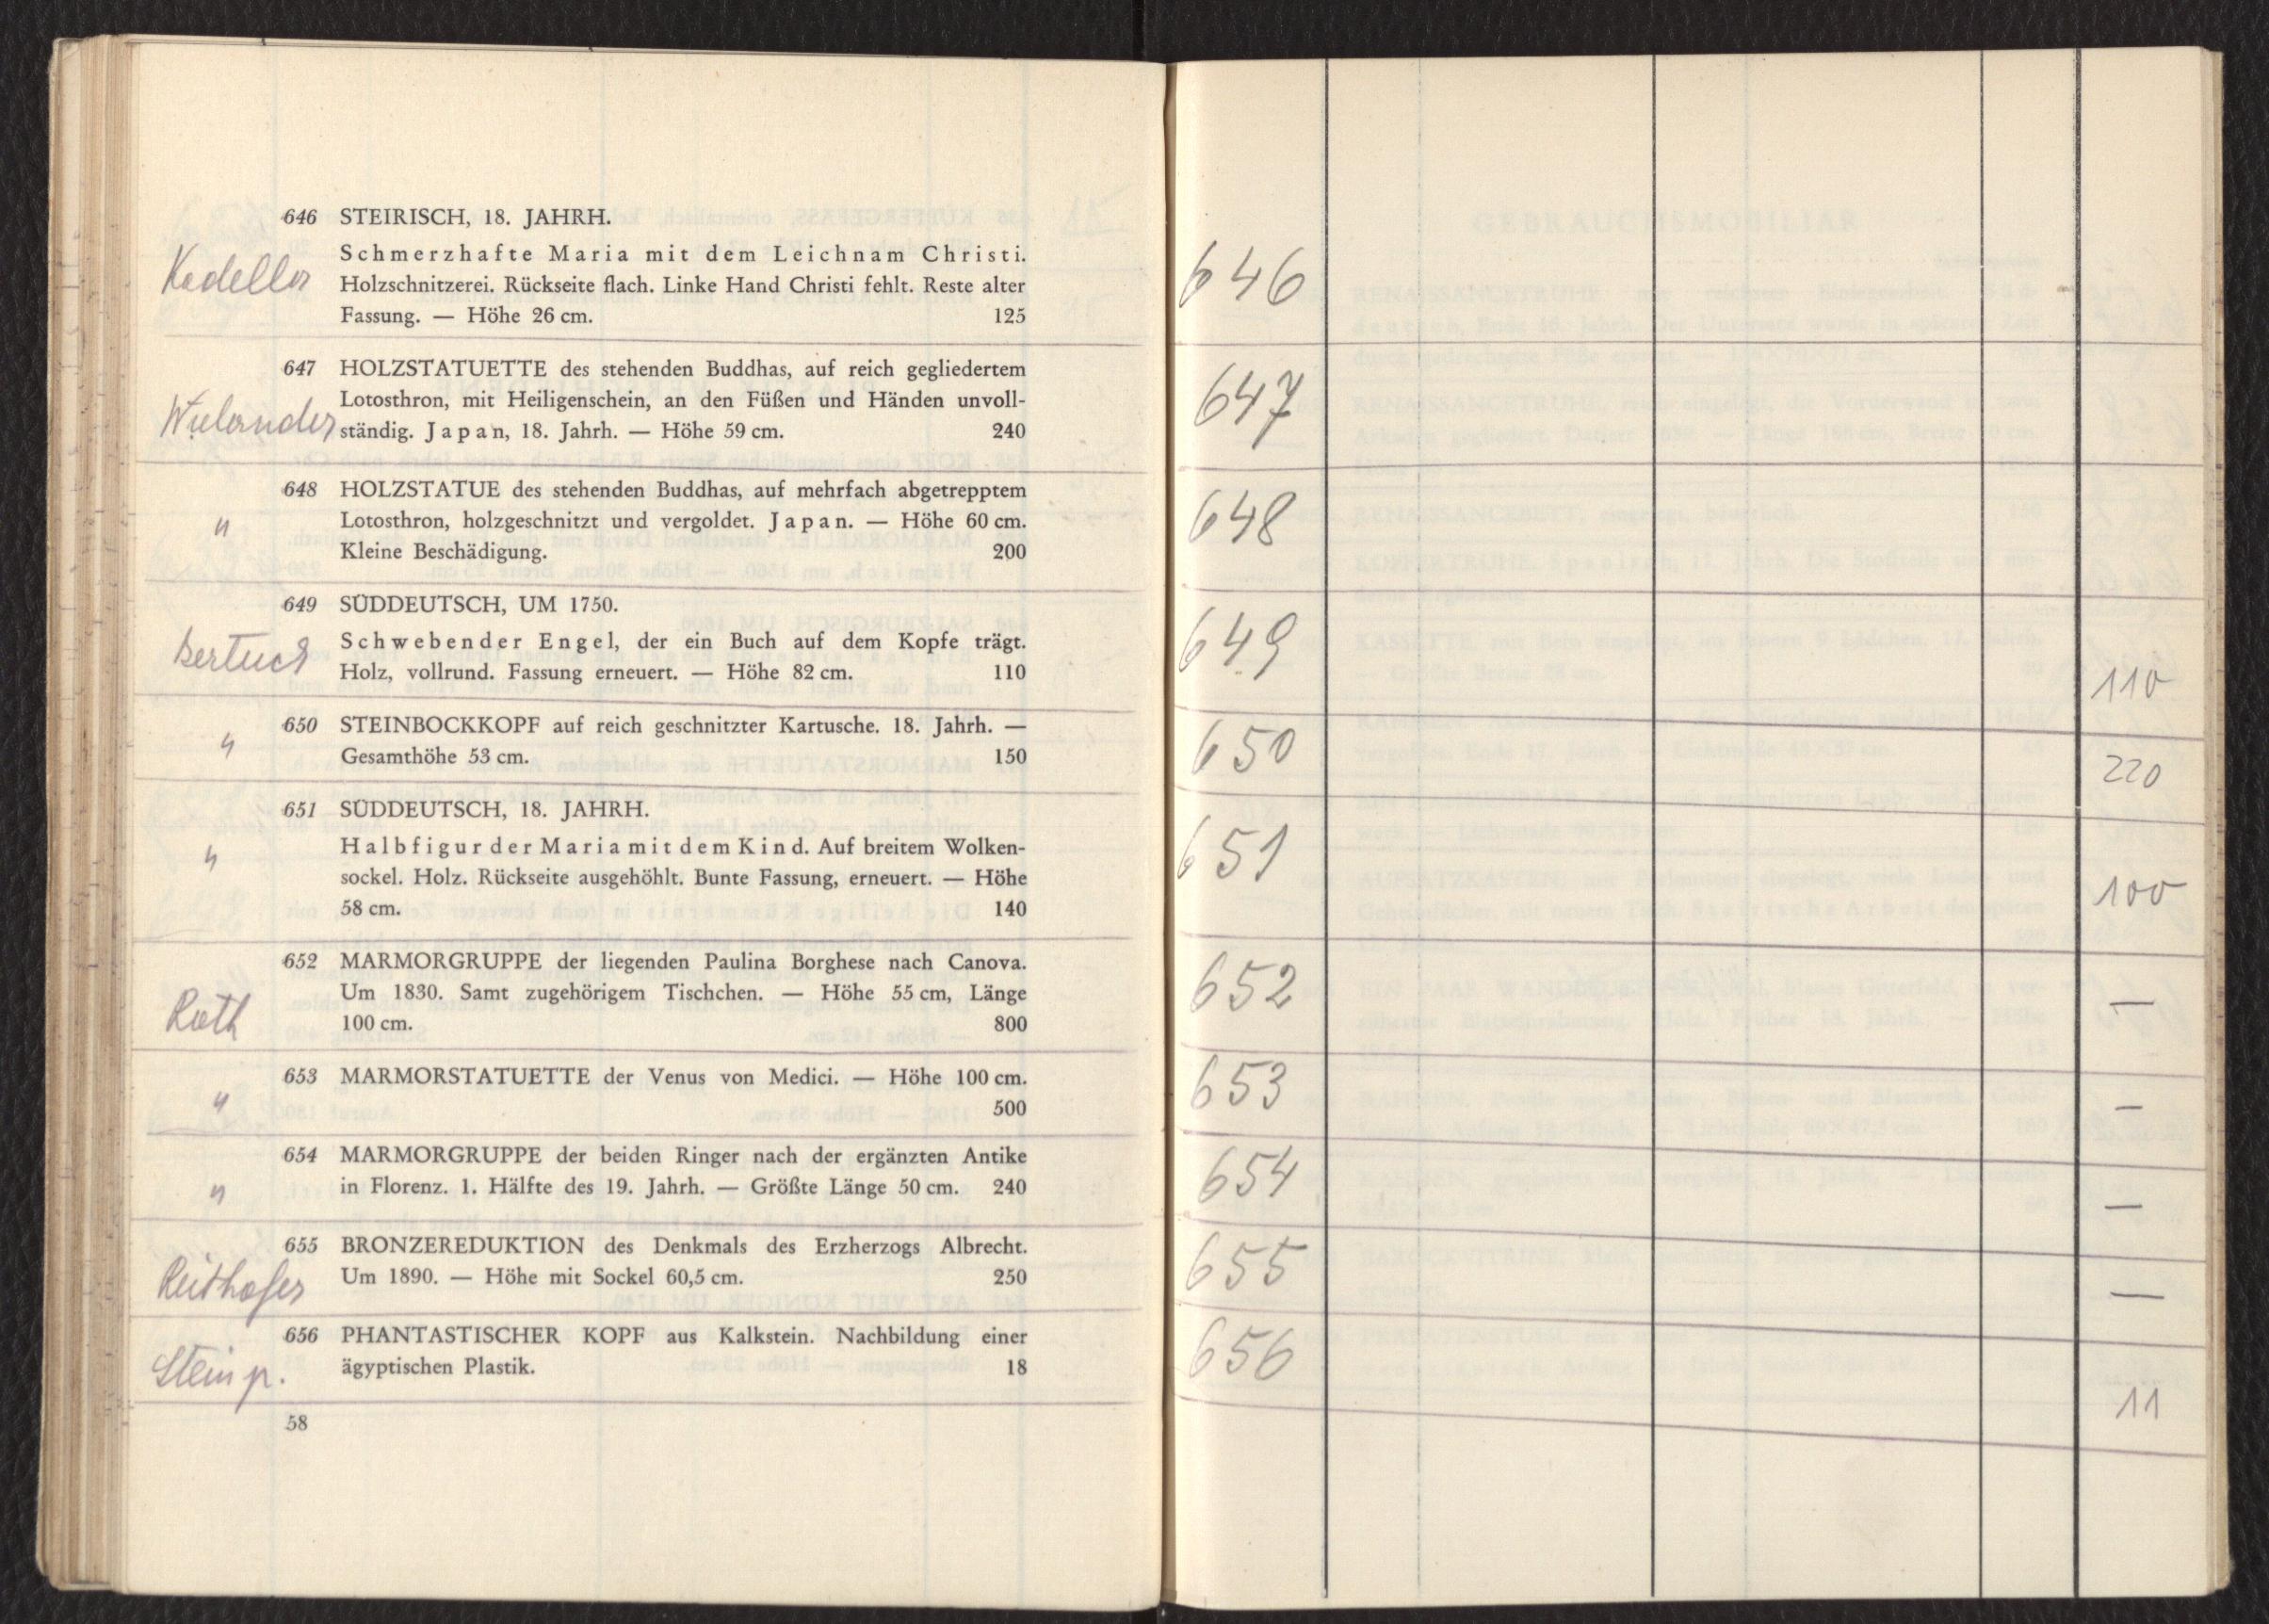 646 STEIRISCH, 18. JAHRH.
Schmerzhafte Maria mit dem Leichnam Christi.
Kadella Holzschnitzerei. Rückseite flach. Linke Hand Christi fehlt. Reste alter
Fassung. — Höhe 26 cm. 125
647 HOLZSTATUETTE des stehenden Buddhas, auf reich gegliedertem
Lotosthron, mit Heiligenschein, an den Füßen und Händen unvoll-
Wielander ständig. Japan, 18. Jahrh. — Höhe 59 cm. 240
648 HOLZSTATUE des stehenden Buddhas, auf mehrfach abgetrepptem
" Lotosthron, holzgeschnitzt und vergoldet. Japan. — Höhe 60 cm.
Kleine Beschädigung. 200
649 SÜDDEUTSCH, UM 1750.
Bertuch Schwebender Engel, der ein Buch auf dem Kopfe trägt.
Holz, vollrund. Fassung erneuert. — Höhe 82 cm. 110
650 STEINBOCKKOPF auf reich geschnitzter Kartusche. 18. Jahrh. —
" Gesamthöhe 53 cm. 150
651 SÜDDEUTSCH, 18. JAHRH.
" Halbfigur der Maria mit dem Kind. Auf breitem Wolken-
sockel. Holz. Rückseite ausgehöhlt. Bunte Fassung, erneuert. — Höhe
58 cm. 140
652 MARMORGRUPPE der liegenden Paulina Borghese nach Canova.
Um 1830. Samt zugehörigem Tischchen. — Höhe 55 cm, Länge
Roth 100 cm. 800
653 MARMORSTATUETTE der Venus von Medici. — Höhe 100 cm.
" 500
654 MARMORGRUPPE der beiden Ringer nach der ergänzten Antike
" in Florenz. 1. Hälfte des 19. Jahrh. — Größte Länge 50 cm. 240
655 BRONZEREDUKTION des Denkmals des Erzherzogs Albrecht.
Reithofer Um 1890. — Höhe mit Sockel 60,5 cm. 250
656 PHANTASTISCHER KOPF aus Kalkstein. Nachbildung einer
Stein p. ägyptischen Plastik. 18
58
646
647
648
649 110
650 220
651 100
652 —
653 —
654 —
655 —
656 11